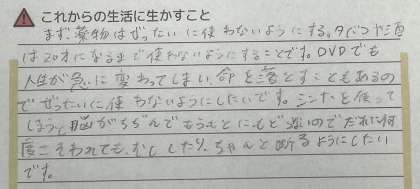 これからの生活に生かすこと
まず薬物はぜったいに使わないようにする。タバコや酒
は20才になるまで使わないようにすることです。DVDでも
人生が急に変わってしまい命を落とすこともあるの
でぜったいに使わないようにしたいです。シンナーを使って
しまうと脳がちぢんでもうもとにもどらないのでだれに何
度さそわれても、むししたり、ちゃんと断るようにしたい
です。